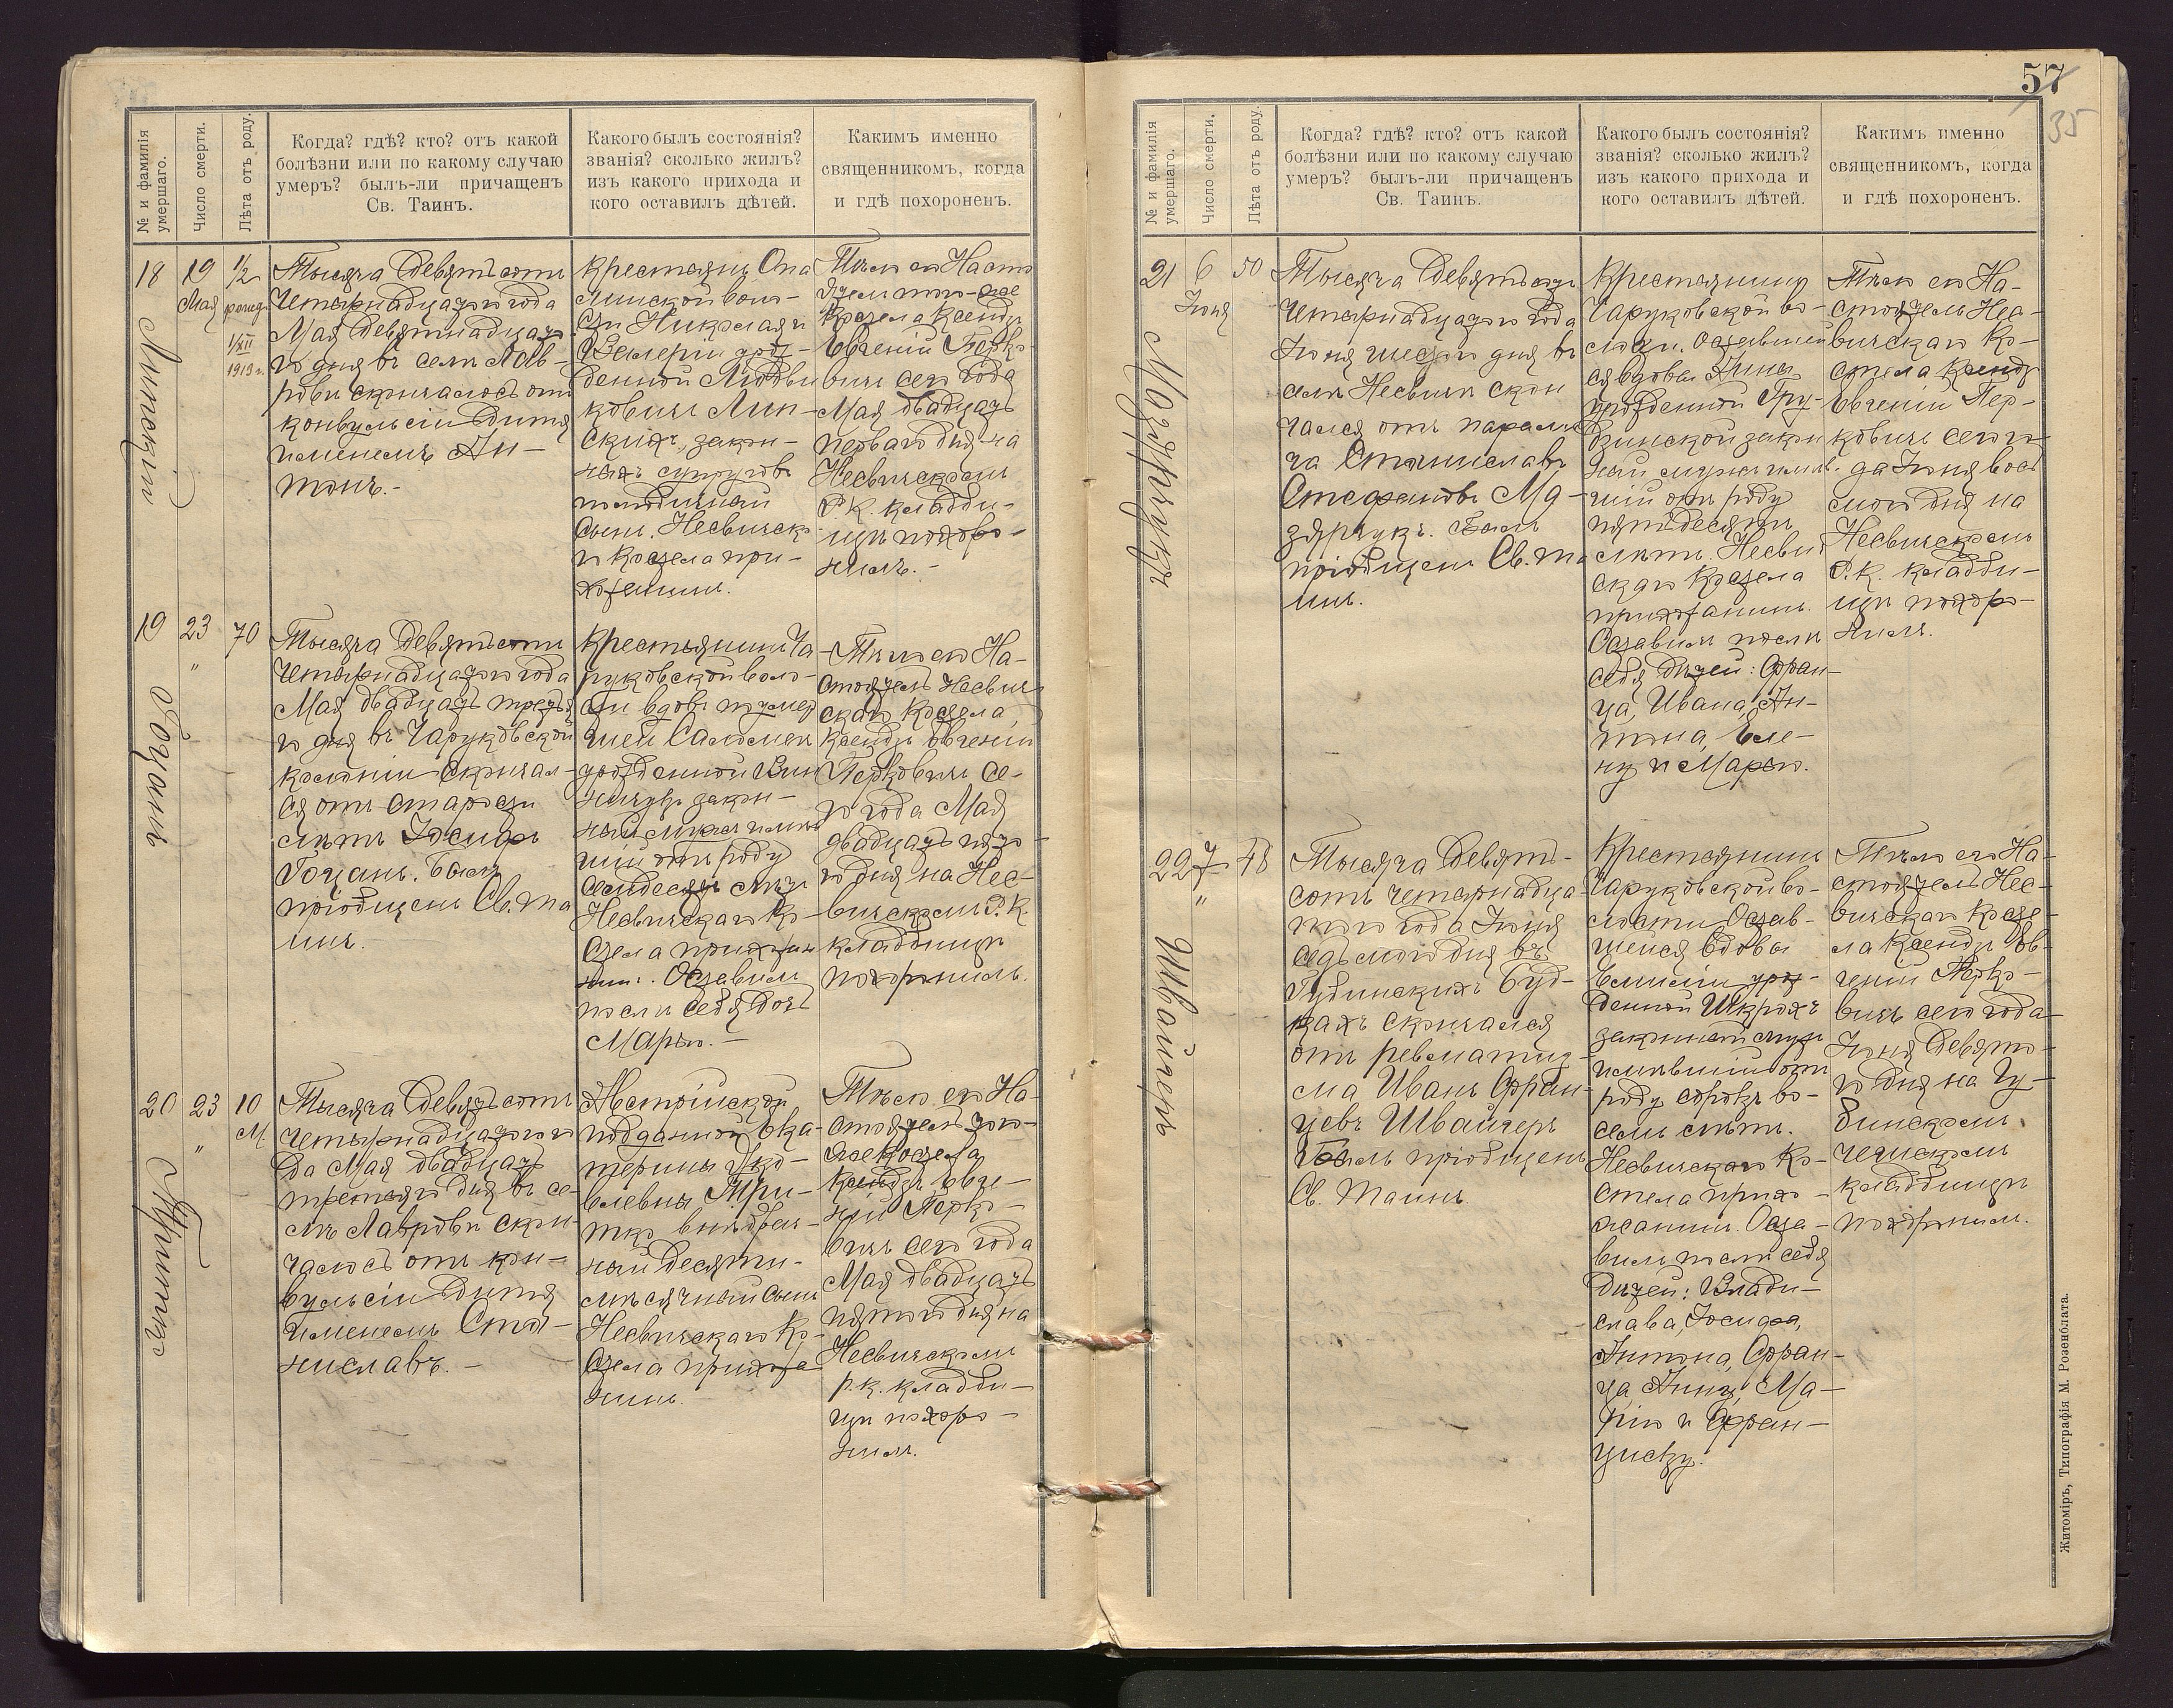 57
35
№ и фамилія умершаго.
Число смерти.
Лѣта отъ роду.
Когда? гдѣ? кто? отъ какой
болѣзни или по какому случаю
умеръ? былъ-ли причащенъ
Св. Таинъ.
Какого былъ состоянія?
званія? сколько жилъ?
изъ какого прихода и
кого оставилъ дѣтей.
Какимъ именно
священникомъ, когда
и гдѣ похороненъ.
18
Липскій
19
Мая
1/2
1/XII
1913 г.
Тысяча девятьсотъ
четырнадцатого года
Мая девятнадцат
го дня въ селѣ Лав-
ровѣ скончалось отъ
конвульсіи дитя
именемъ Ан-
тонъ.-
Крестьянъ
воло-
сти Николая и
Валеріи урож-
денной
ковичъ Лип-
скихъ, закон-
ныхъ супруговъ
полгодичный
сынъ. Несвичска
го костела при-
хожанинъ.
Тѣло его Насто
ятель того-же
костела Ксендзъ
Евгеній Перко
вичъ сего года
Мая двадцать
перваго дня на
Несвичскомъ
Р.К. кладби-
щѣ похоро-
нилъ.-
19
Гоцанъ
23
"
70
Тысяча девятьсотъ
четырнадцатого года
Мая двадцать третья
го дня въ Чаруковской
колоніи скончал-
ся отъ старости
лѣтъ Іосифъ
Гоцанъ. Былъ
пріобщенъ Св. Та
инъ.
Крестьянинъ Ча
руковской воло-
сти вдовъ по умер
шей Саломеи
урожденной
закон-
ный мужъ имѣв
шій отъ роду
семдесятъ лѣтъ
Несвичскаго Ко-
стела прихожа
нинъ. Оставилъ
послѣ себя дочь
Марью.-
Тѣло его На-
стоятель Несвич
скаго Костела,
Ксендзъ Евгеній
Перковичъ се-
го года Мая
двадцать пято
го дня на Нес-
вичскомъ Р.К.
кладбищѣ
похоронилъ.
20
23
"
10
М.
Тысяча девятьсотъ
четырнадцатого го
да Мая двадцать
третьяго дня въ се-
лѣ Лавровѣ скон-
чалось отъ кон-
вульсіи дитя
именемъ Ста-
ниславъ.-
Австрійской
подданной Ека-
терины Яко-
влевны
внѣбрач-
ный десяти-
мѣсячный сынъ
Несвичскаго Ко-
стела прихожа
нинъ.
Тѣло его На-
стоятель того-
же Костела
Ксендзъ Евге-
ній Перко-
вичъ сего года
Мая двадцать
пятого дня на
Несвичскомъ
Р.К. кладби-
щѣ похоро-
нилъ.
№ и фамилія умершаго.
Число смерти.
Лѣта отъ роду.
Когда? гдѣ? кто? отъ какой
болѣзни или по какому случаю
умеръ? былъ-ли причащенъ
Св. Таинъ.
Какого былъ состоянія?
званія? сколько жилъ?
изъ какого прихода и
кого оставилъ дѣтей.
Какимъ именно
священникомъ, когда
и гдѣ похороненъ.
21
Мазярчукъ
6
Іюня
50
Тысяча девятьсотъ
четырнадцатого года
Іюня шестого дня въ
селѣ Несвичѣ скон
чался отъ парали
ча Станиславъ
Стефановъ Ма-
зярчукъ. Былъ
пріобщенъ Св. Та
инъ.
Крестьянинъ
Чаруковской во-
лости. Оставшей
ся вдовы Анны
урожденной Гру-
дзинской закон
ный мужъ имѣв
шій отъ роду
пятьдесятъ
лѣтъ. Несвич
скаго Костела
прихожанинъ.
Оставилъ послѣ
себя дѣтей: Фран-
ца, Ивана, Ан-
тона, Еле-
ну и Марью.
Тѣло его На-
стоятель Нес-
вичскаго Ко-
стела Ксендзъ
Евгеній Пер-
ковичъ сего го-
да Іюня вось
мого дня на
Несвичскомъ
Р.К. кладби-
щѣ похоро-
нилъ.
22
Швайгеръ
7
"
48
Тысяча девять-
сотъ четырнадца-
того года Іюня
седьмого дня въ
Губинскихъ Буд-
кахъ скончался
отъ ревматиз-
ма Иванъ Фран-
цевъ Швайгеръ
Былъ пріобщенъ
Св. Таинъ.
Крестьянинъ
Чаруковской во-
лости Остав-
шейся вдовы
Емиліи урож-
денной Шкрохъ
законный мужъ
имѣвшій отъ
роду сорокъ во-
семь лѣтъ.
Несвичскаго Ко-
стела прихо-
жанинъ. Оста-
вилъ послѣ себя
дѣтей: Влади-
слава, Іосифа,
Антона, Фран-
ца Анну, Ма-
рію и Фран-
циску.
Тѣло его На-
стоятель Нес-
вичскаго Косте-
ла Ксендзъ Ев-
геній Перко-
вичъ сего года
Іюня девято-
го дня на Гу-
бинскомъ
чешскомъ
кладбищѣ
похоронилъ.
Житоміръ, Типографія М. Розенблата.